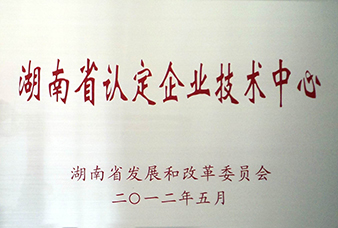 湖南省认定企业技术中心
湖南省发展和改革委员会
二〇一二年五月